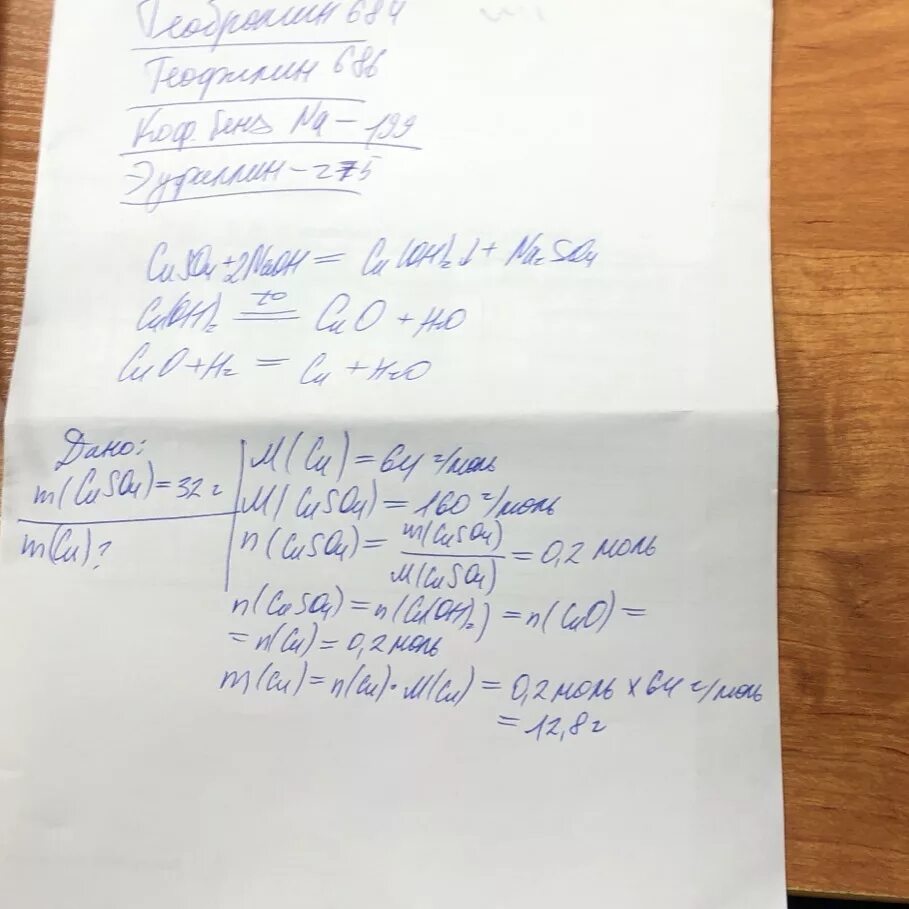 Теобромин 684
Теофилин 686
Коф. бенз Na – 199
Эуфиллин – 275
CuSO₄ + 2NaOH = Cu(OH)₂↓ + Na₂SO₄
Cu(OH)₂ =t°= CuO + H₂O
CuO + H₂ = Cu + H₂O
Дано:
m(CuSO₄) = 32 г
m(Cu)?
M(Cu) = 64 г/моль
M(CuSO₄) = 160 г/моль
n(CuSO₄) = m(CuSO₄) / M(CuSO₄) = 0,2 моль
n(CuSO₄) = n(Cu(OH)₂) = n(CuO) =
= n(Cu) = 0,2 моль
m(Cu) = n(Cu) · M(Cu) = 0,2 моль × 64 г/моль
= 12,8 г